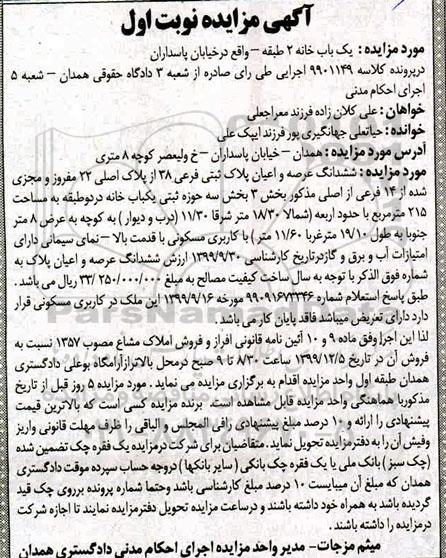 آگهی مزایده نوبت اول
مورد مزایده : یک باب خانه ۲ طبقه – واقع درخیابان پاسداران
درپرونده کلاسه ۹۹۰۱۱۴۹ اجرایی طی رای صادره از شعبه ۳ دادگاه حقوقی همدان – شعبه ۵
اجرای احکام مدنی
خواهان : علی کلان زاده فرزند معراجعلی
خوانده : حیاتعلی جهانگیری پور فرزند ایبک علی
آدرس مورد مزایده : همدان – خیابان پاسداران – خ ولیعصر کوچه ۸ متری
مورد مزایده : ششدانگ عرصه و اعیان پلاک ثبتی فرعی ۳۸ از پلاک اصلی ۲۲ مفروز و مجزی
شده از ۱۴ فرعی از اصلی مذکور بخش ۳ بخش سه حوزه ثبتی یکباب خانه دردوطبقه به مساحت
۲۱۵ مترمربع با حدود اربعه (شمالا ۱۸/۳۰ متر شرقا ۱۱/۳۰ (درب و دیوار ) به کوچه به عرض ۸ متر
جنوبا به طول ۱۹/۱۰ مترغربا ۱۱/۶۰ متر ) با کاربری مسکونی با قدمت بالا – نمای سیمانی دارای
امتیازات آب و برق و گازدرتاریخ کارشناسی ۱۳۹۹/۹/۳۰ ارزش ششدانگ عرصه و اعیان پلاک به
شماره فوق الذکر با توجه به سال ساخت کیفیت مصالح به مبلغ ۳۳/ ۲۵۰/۰۰۰/۰۰۰ ریال می باشد .
طبق پاسخ استعلام شماره ۹۹۰۹۱۶۷۳۳۴۶ مورخه ۱۳۹۹/۹/۱۶ این ملک در کاربری مسکونی قرار
دارد دارای تعریض میباشد فاقد پایان کار می باشد .
لذا این اجرا وفق ماده ۹ و ۱۰ آئین نامه قانونی افراز و فروش املاک مشاع مصوب ۱۳۵۷ نسبت به
فروش آن در تاریخ ۱۳۹۹/۱۲/۵ ساعت ۸/۳۰ تا ۹ صبح درمحل بالاترازآرامگاه بوعلی دادگستری
همدان طبقه اول واحد مزایده اقدام به برگزاری مزایده می نماید . مورد مزایده ۵ روز قبل از تاریخ
مذکوربا هماهنگی واحد مزایده قابل مشاهده است. برنده مزایده کسی است که بالاترین قیمت
پیشنهادی را ارائه و ۱۰ درصد مبلغ پیشنهادی رافی المجلس و الباقی را ظرف مهلت قانونی واریز
وفیش آن را به دفترمزایده تحویل نماید. متقاضیان برای شرکت درمزایده یک فقره چک تضمین شده
(چک سبز ) بانک ملی یا یک فقره چک بانکی ( سایر بانکها ) دروجه حساب سپرده موقت دادگستری
همدان که مبلغ آن میبایست ۱۰ درصد مبلغ کارشناسی باشد وحتما شماره پرونده برروی چک قید
گردیده باشد به همراه خود داشته باشند و درساعت مزایده تحویل دفترمزایده نمایند تا اجازه شرکت
درمزایده را داشته باشند .
میثم مزجات – مدیر واحد مزایده اجرای احکام مدنی دادگستری همدان